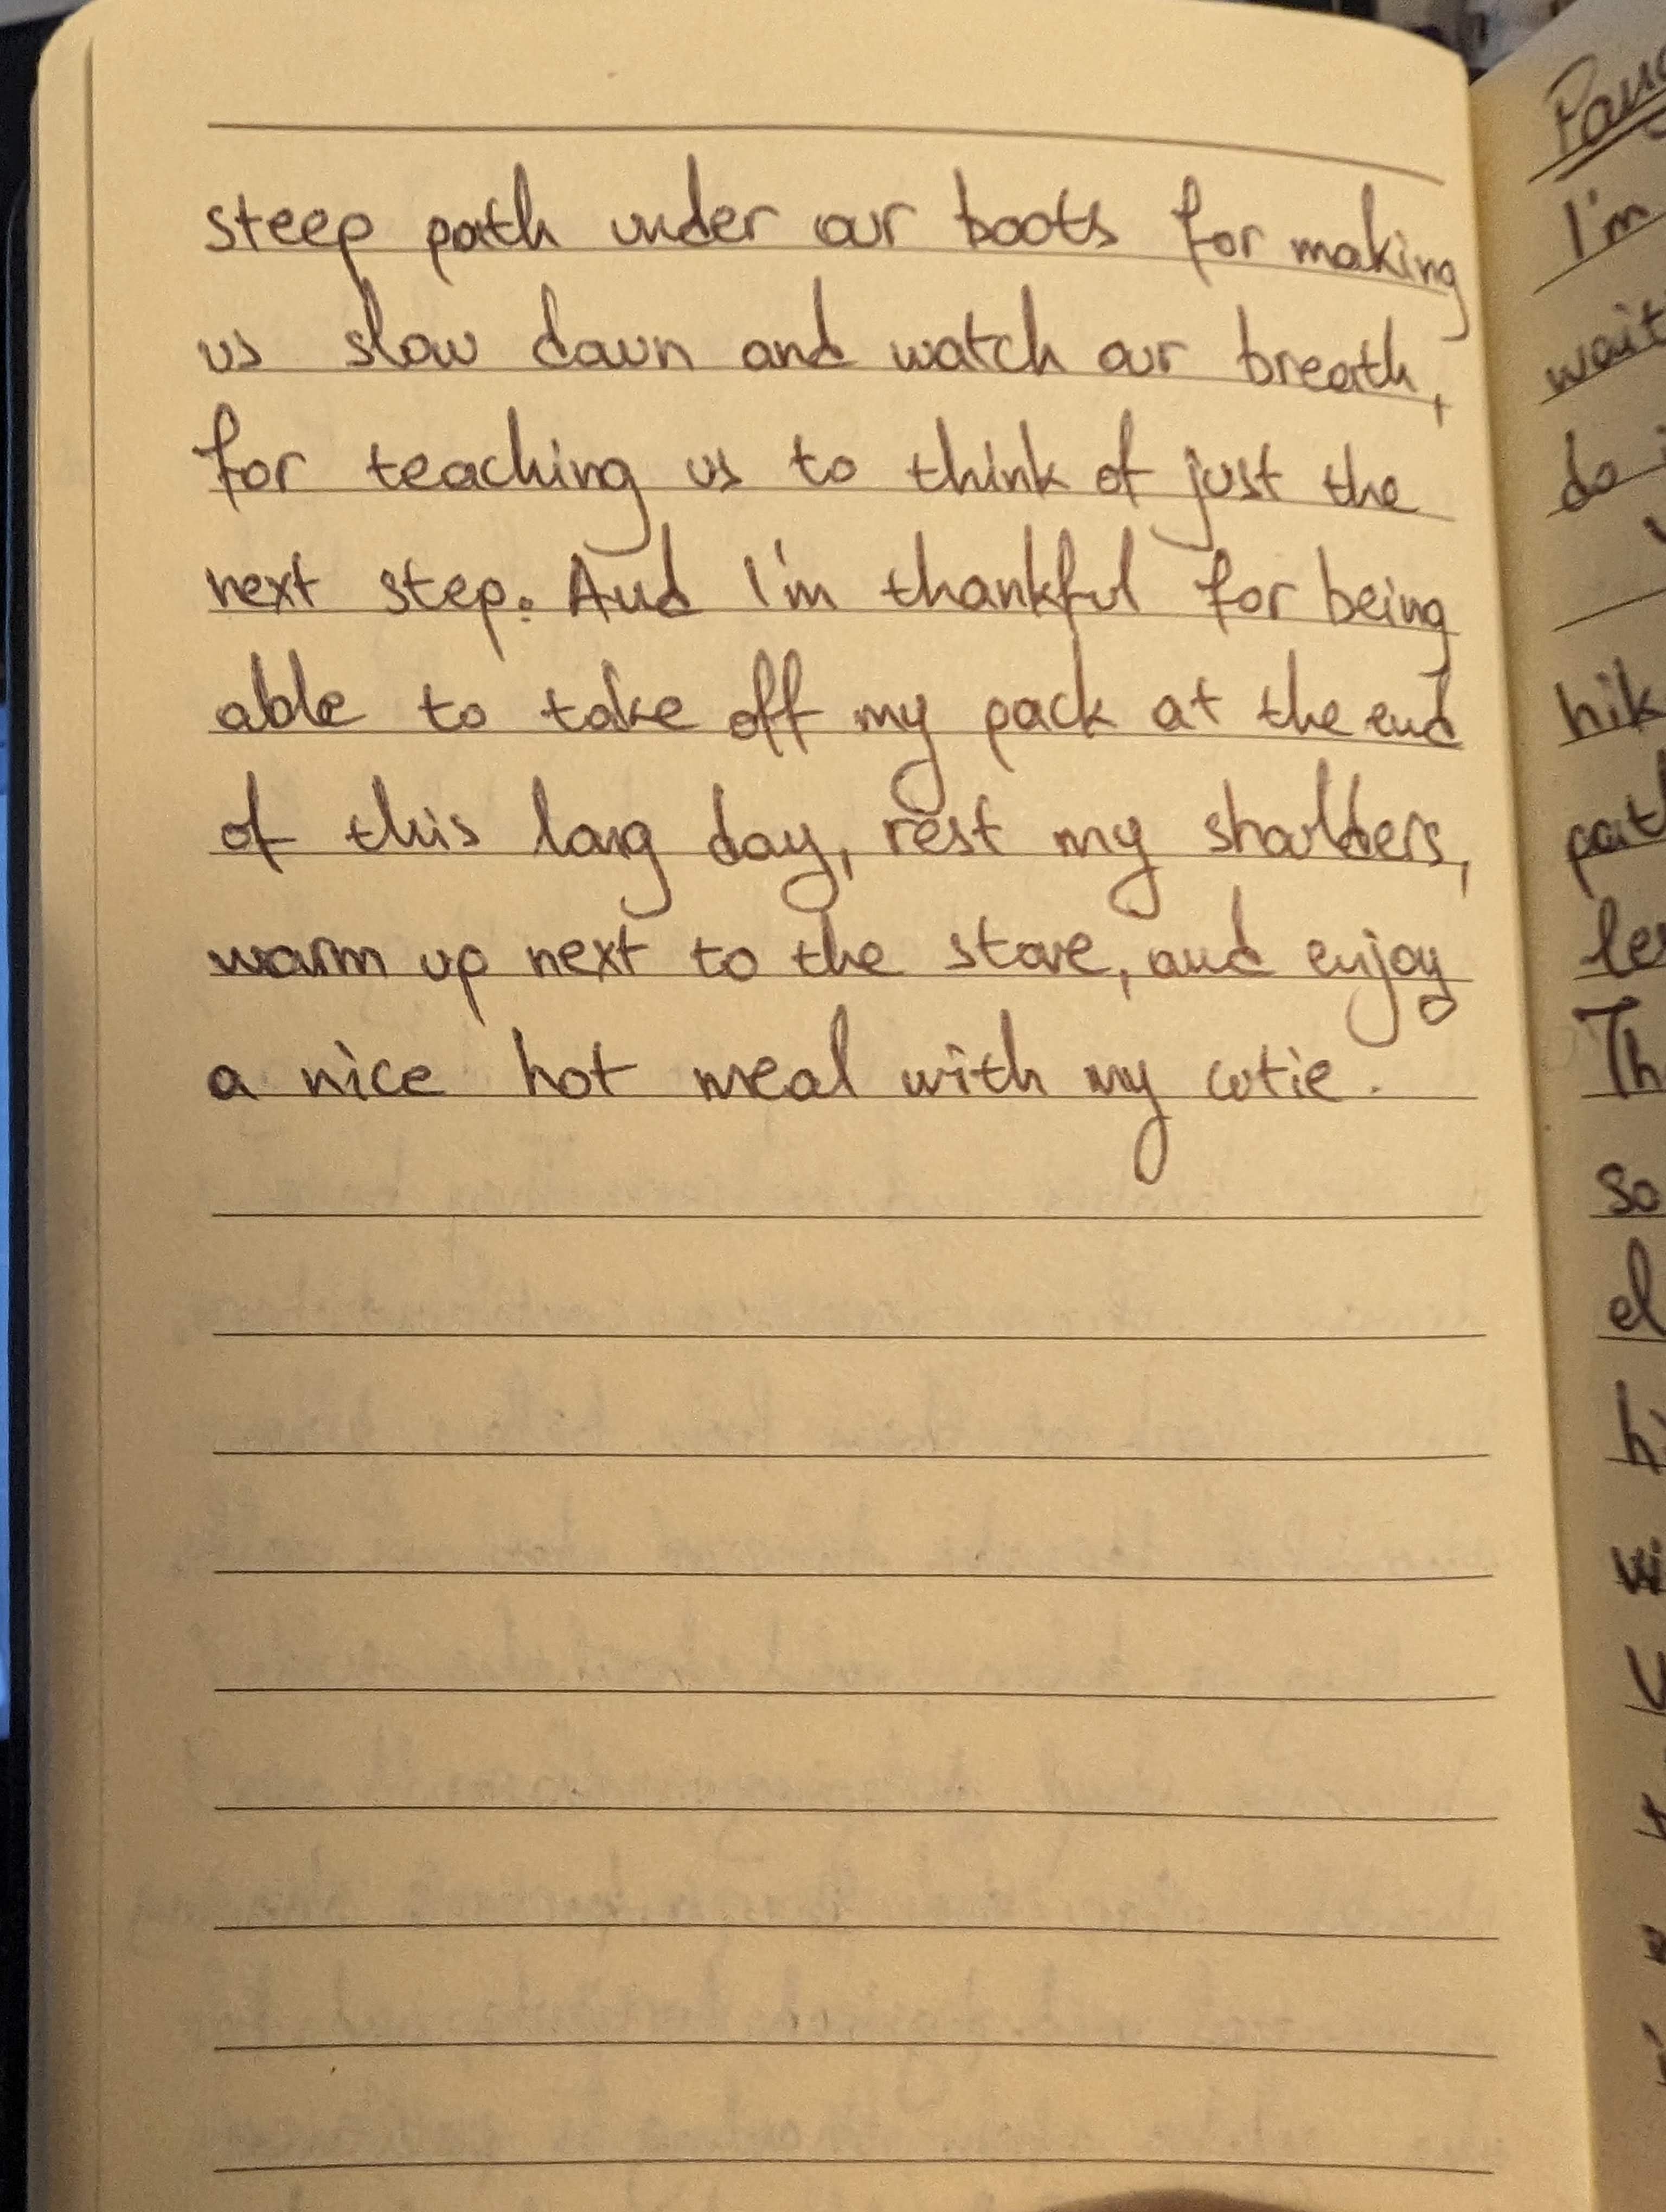 steep path under our boots for making
us slow down and watch our breath,
for teaching us to think of just the
next step. And I'm thankful for being
able to take off my pack at the end
of this long day, rest my shoulders,
warm up next to the stove, and enjoy
a nice hot meal with my cutie.
I'm
do
Th
so